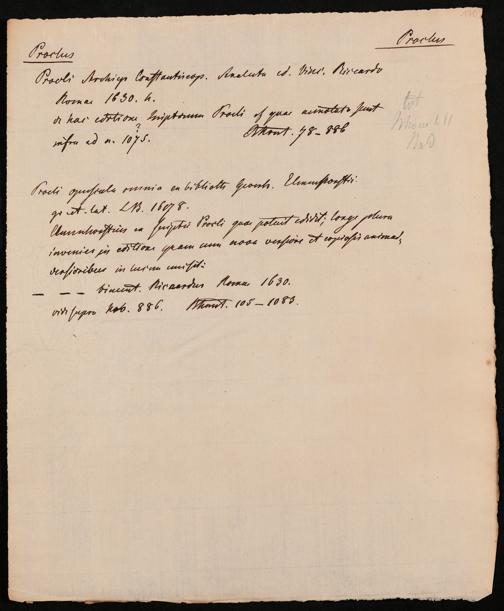 Proclus
Proclus
Procli Archiep. Constantinop. Analecta ed. Vinc. Riccardo
Romae 1630. 4.
de hac editione scriptorum Procli cf quae annotata sunt
infra ad n. 1075. 78–886
Procli opuscula omnia ex biblioth. Geverh. Elmenhorstii
gr. et. lat. LB. 1617 8.
Elmenhorstius ex scriptis Procli quae potuit edidit; longe plura
invenies in editione quam cum nova versione et copiosis animad-
versionibus in lucem emisit:
– – – Vincent. Riccardus Romae 1630.
vide supra Nob. 886. 105–1083.